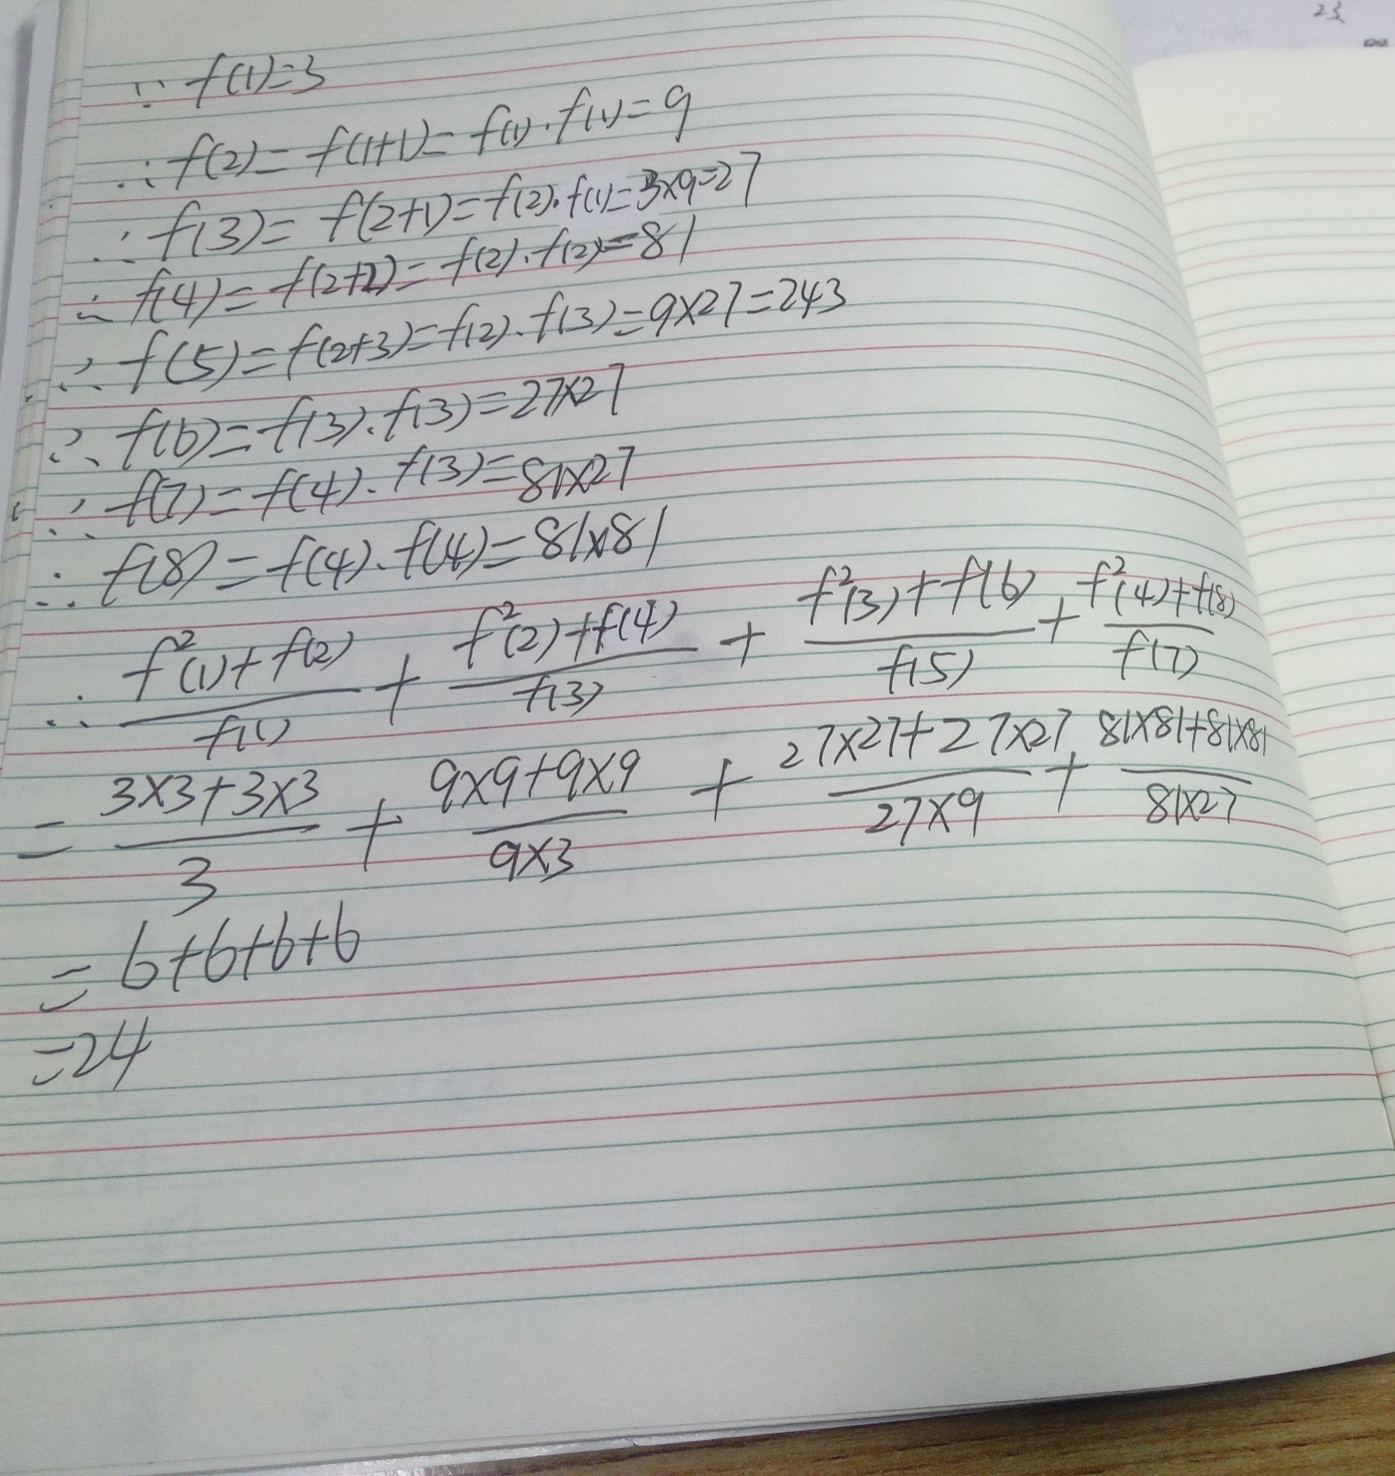 ∵ f(1)=3
∴ f(2)= f(1+1)= f(1)·f(1)=9
∴ f(3)= f(2+1)=f(2)·f(1)=3×9=27
∴ f(4)= f(2+2)= f(2)·f(2)=81
∴ f(5)=f(2+3)=f(2)·f(3)=9×27=243
∴ f(6)=f(3)·f(3)=27×27
∴ f(7)=f(4)·f(3)=81×27
∴ f(8)=f(4)·f(4)=81×81
∴ (f²(1)+f(2))/f(1) + (f²(2)+f(4))/f(3) + (f²(3)+f(6))/f(5) + (f²(4)+f(8))/f(7)
= (3×3+3×3)/3 + (9×9+9×9)/(9×3) + (27×27+27×27)/(27×9) + (81×81+81×81)/(81×27)
= 6+6+6+6
=24